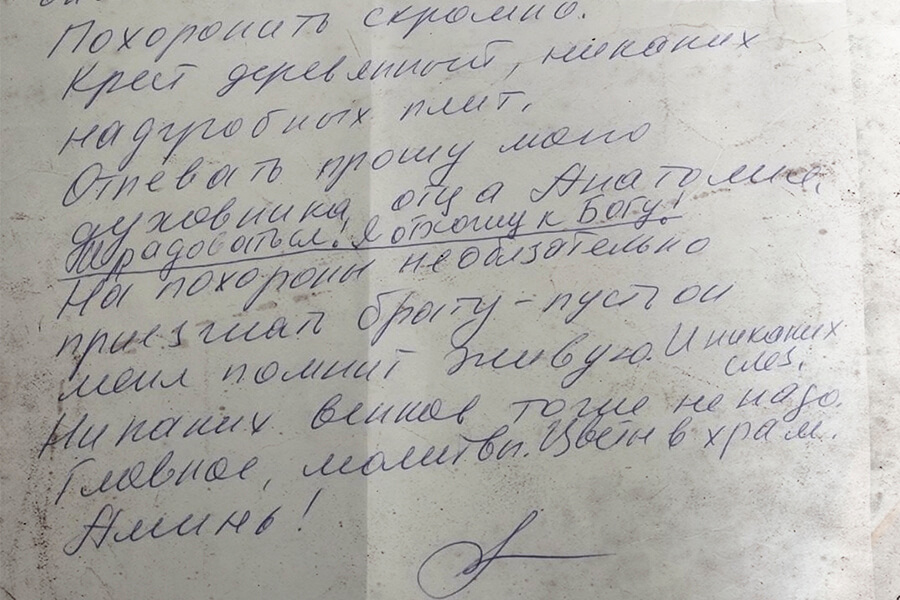 Похоронить скромно.
Крест деревянный, никаких
надгробных плит.
Отпевать прошу моего
духовника, отца Анатолия.
радоваться! Я отхожу к Богу!
На похороны необязательно
приезжать брату - пусть он
меня помнит живую. И никаких
слез.
Никаких венков тоже не надо.
Главное, молитвы. Цветы в храм.
Аминь!